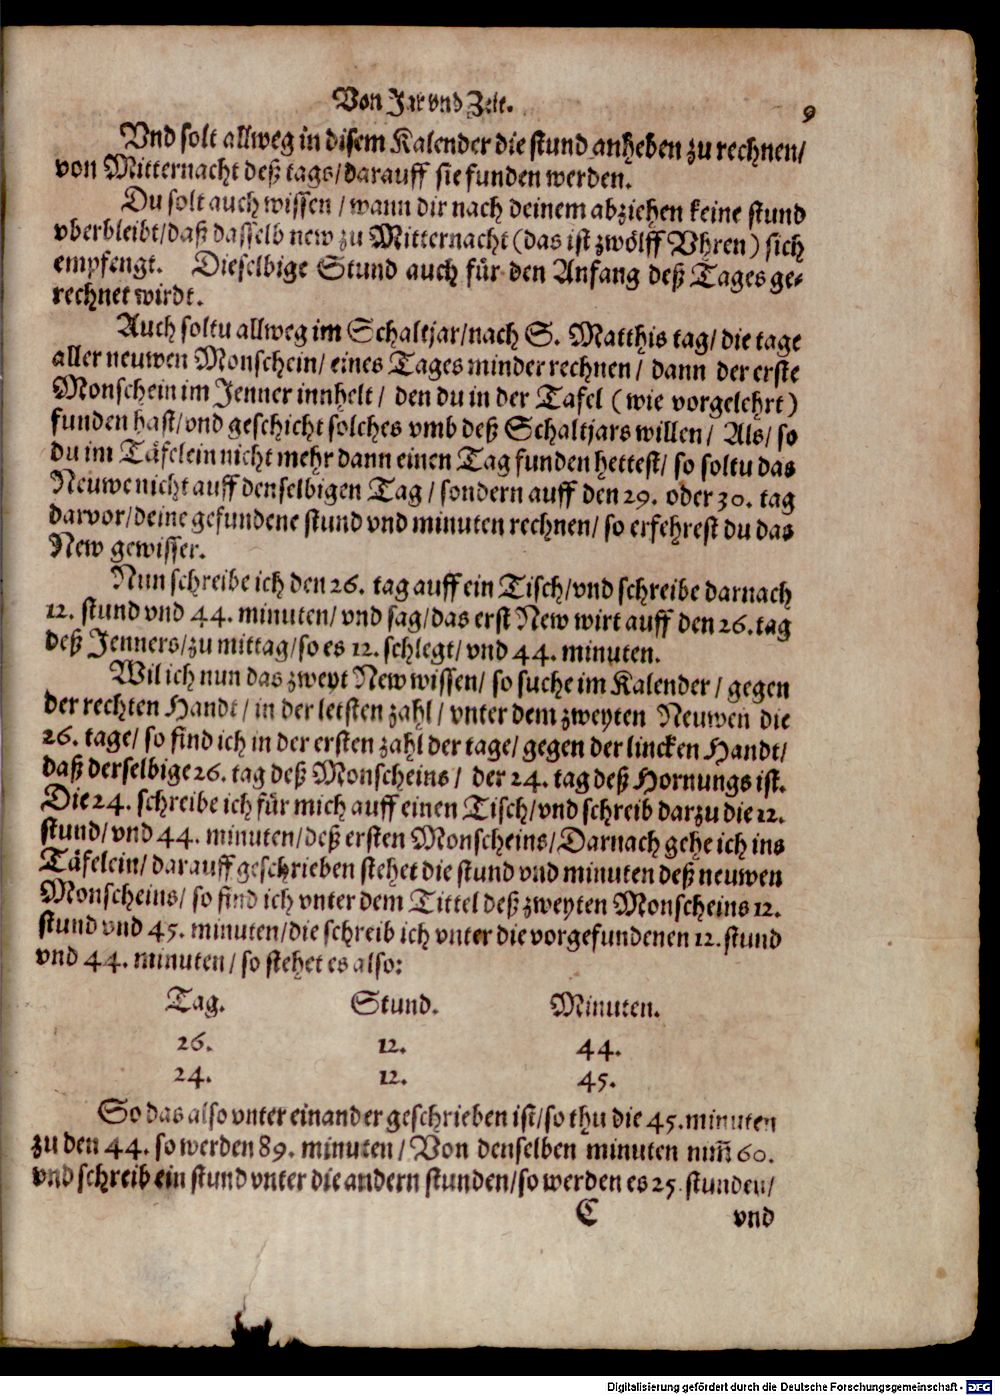 Von Jar vnd Zeit. 9
Vnd solt allweg in disem Kalender die stund anheben zu rechnen/
von Mitternacht deß tags/darauff sie funden werden.
Du solt auch wissen / wann dir nach deinem abziehen keine stund
vberbleibt/daß dasselb new zu Mitternacht (das ist zwölff Vhren) sich
empfengt. Dieselbige Stund auch für den Anfang deß Tages ge-
rechnet wirdt.
Auch soltu allweg im Schaltjar/nach S. Matthis tag/ die tage
aller neuwen Monschein/ eines Tages minder rechnen / dann der erste
Monschein im Jenner innhelt / den du in der Tafel (wie vorgelehrt)
funden hast/vnd geschicht solches vmb deß Schaltjars willen/ Als/ so
du im Täfelein nicht mehr dann einen Tag funden hettest/ so soltu das
Neuwe nicht auff denselbigen Tag / sondern auff den 29. oder 30. tag
darvor/deine gefundene stund vnd minuten rechnen/ so erfehrest du das
New gewisser.
Nun schreibe ich den 26. tag auff ein Tisch/vnd schreibe darnach
12. stund vnd 44. minuten/ vnd sag/das erst New wirt auff den 26. tag
deß Jenners/zu mittag/so es 12. schlegt/ vnd 44. minuten.
Wil ich nun das zweyt New wissen/ so suche im Kalender / gegen
der rechten Handt / in der letsten zahl / vnter dem zweyten Neuwen die
26. tage/ so find ich in der ersten zahl der tage/ gegen der lincken Handt/
daß derselbige 26. tag deß Monscheins / der 24. tag deß Hornungs ist.
Die 24. schreibe ich für mich auff einen Tisch/vnd schreib darzu die 12.
stund/ vnd 44. minuten/deß ersten Monscheins/Darnach gehe ich ins
Täfelein/ darauff geschrieben stehet die stund vnd minuten deß neuwen
Monscheins/ so find ich vnter dem Tittel deß zweyten Monscheins 12.
stund vnd 45. minuten/die schreib ich vnter die vorgefundenen 12. stund
vnd 44. minuten / so stehet es also:
Tag. Stund. Minuten.
26. 12. 44.
24. 12. 45.
So das also vnter einander geschrieben ist/so thu die 45. minuten
zu den 44. so werden 89. minuten / Von denselben minuten nim̃ 60.
vnd schreib ein stund vnter die andern stunden/so werden es 25. stunden/
C vnd
Digitalisierung gefördert durch die Deutsche Forschungsgemeinschaft - DFG